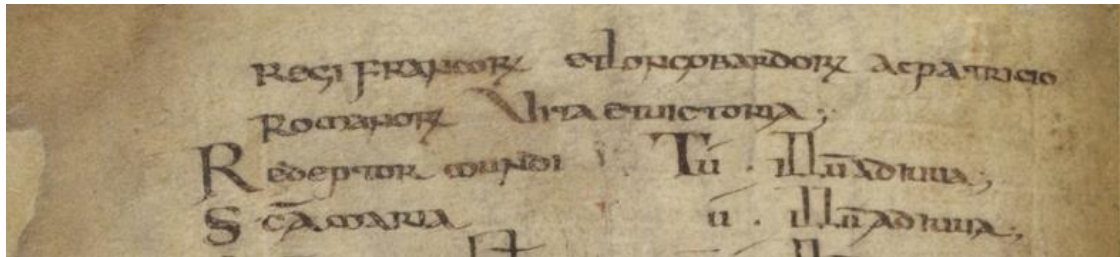 Regi francorꝝ et longobardorꝝ ac patricio
Romanorꝝ Vita et victoria;
Redēptor mundi Tu . illū adiuua;
Scā maria tu . illū adiuua;